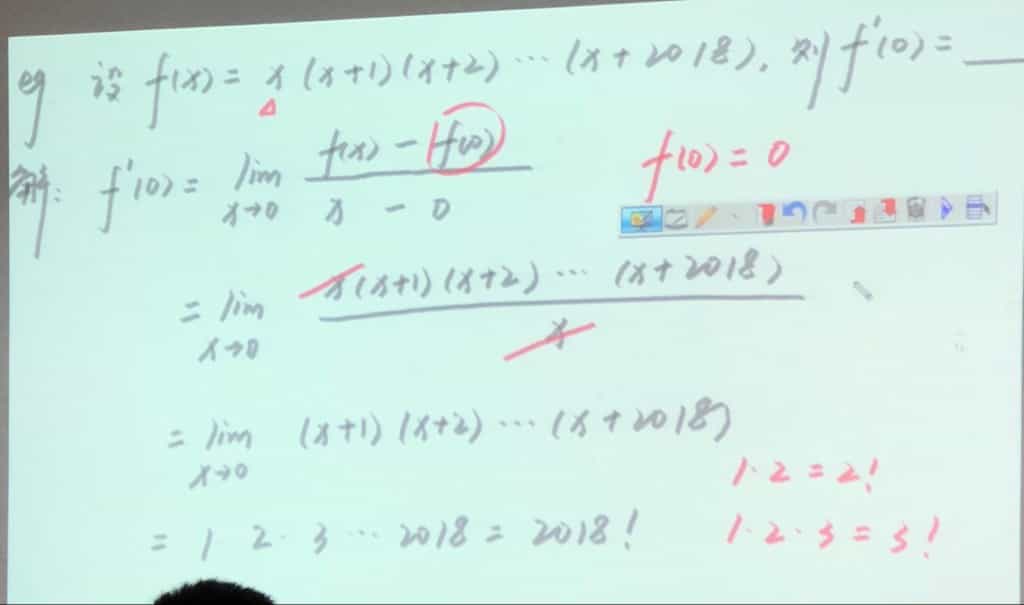 eg 设 f(x) = x (x+1) (x+2) ⋯ (x+2018), 则 f'(0) = ___
解: f'(0) = lim x→0 f(x) − f(0) / x − 0
f(0) = 0
= lim x→0 x(x+1)(x+2) ⋯ (x+2018) / x
= lim x→0 (x+1)(x+2) ⋯ (x+2018)
1·2 = 2!
= 1 2·3 ⋯ 2018 = 2018!
1·2·3 = 3!